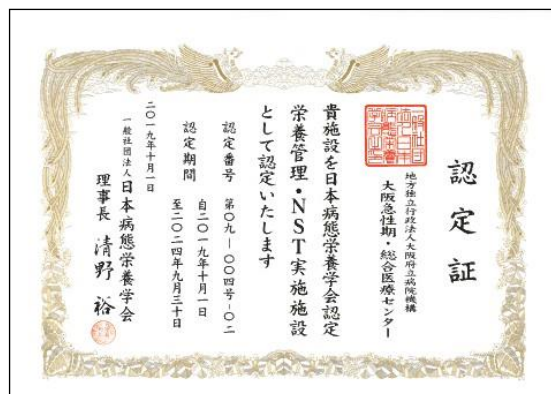 認定証
地方独立行政法人大阪府立病院機構
大阪急性期・総合医療センター
貴施設を日本病態栄養学会認定
栄養管理・NST実施施設
として認定いたします
認定番号 第〇九―〇〇四号-〇二
認定期間 自二〇一九年十月一日
至二〇二四年九月三十日
二〇一九年十月一日
一般社団法人日本病態栄養学会
理事長 清野 裕